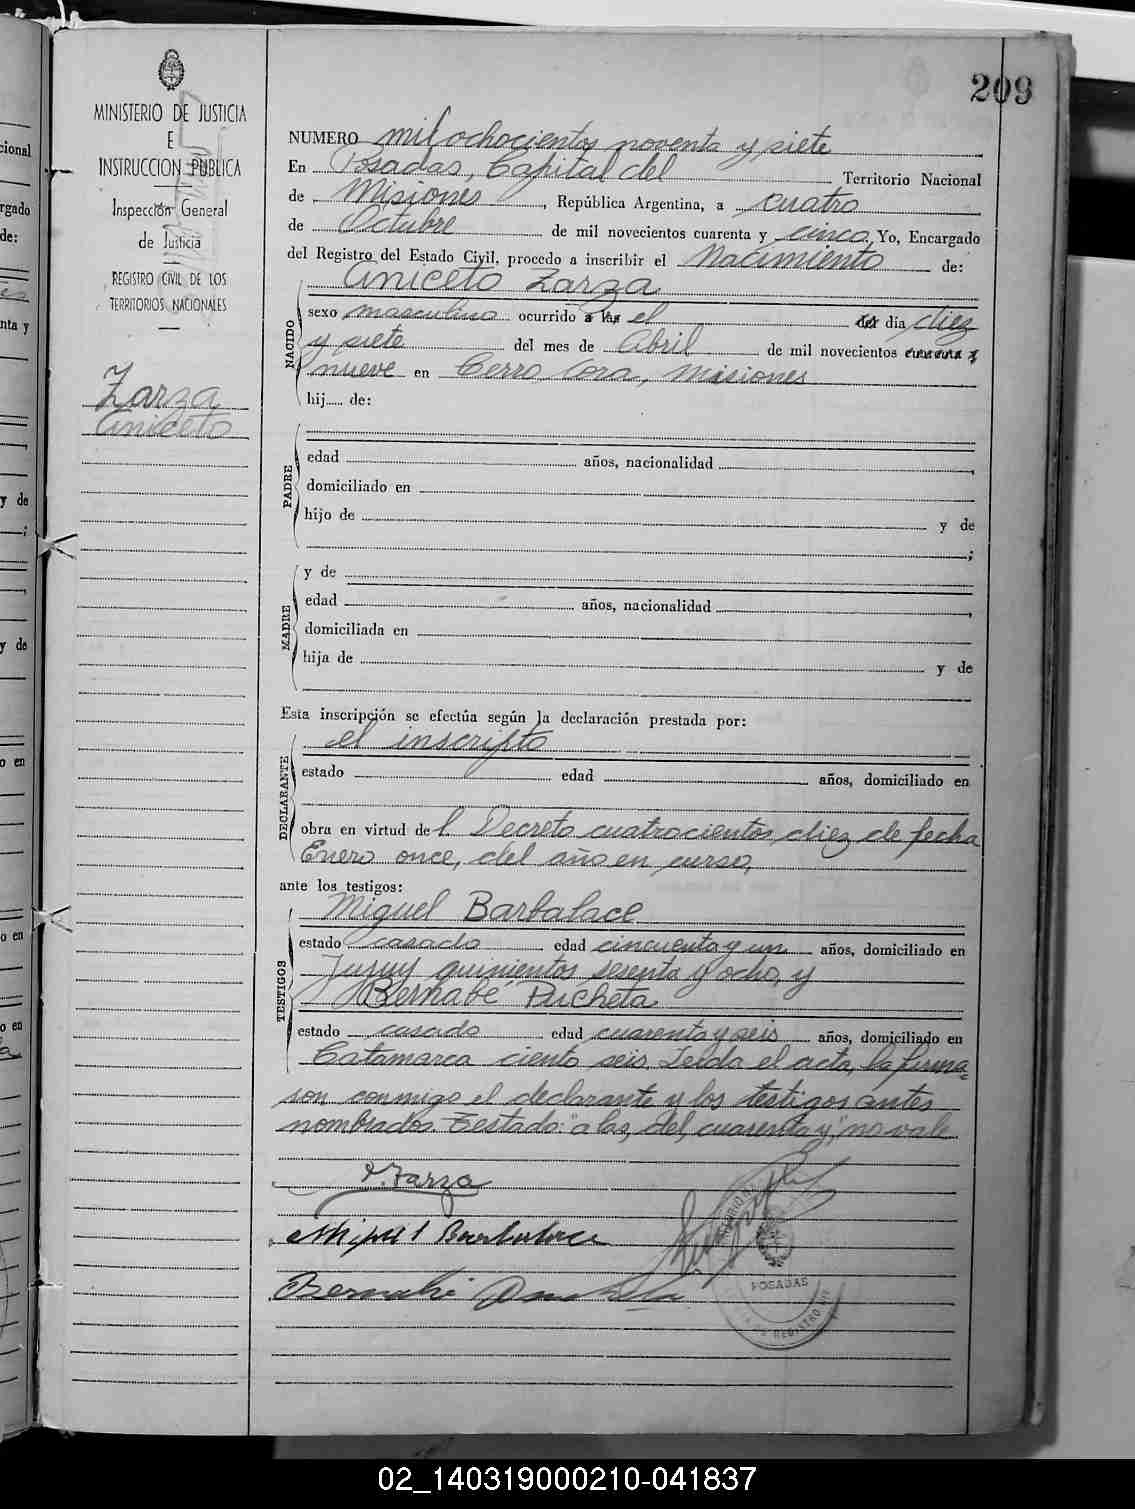 209
MINISTERIO DE JUSTICIA
E
INSTRUCCION PUBLICA
Inspección General
de Justicia
REGISTRO CIVIL DE LOS
TERRITORIOS NACIONALES
Zarza
Aniceto
NUMERO mil ochocientos noventa y siete
En Posadas, Capital del Territorio Nacional
de Misiones, República Argentina, a cuatro
de Octubre de mil novecientos cuarenta y cinco, Yo, Encargado
del Registro del Estado Civil, procedo a inscribir el Nacimiento de:
Aniceto Zarza
NACIDO
sexo masculino ocurrido a las el del dia diez
y siete del mes de Abril de mil novecientos cuarenta y
nueve en Cerro Cora, Misiones
hij..... de:
PADRE
edad años, nacionalidad ,
domiciliado en
hijo de y de
;
MADRE
y de
edad años, nacionalidad ,
domiciliada en
hija de y de
Esta inscripción se efectúa según la declaración prestada por:
DECLARANTE
el inscripto
estado edad años, domiciliado en
obra en virtud del Decreto cuatrocientos diez de fecha
Enero once, del año en curso,
ante los testigos:
TESTIGOS
Miguel Barbalace
estado casado edad cincuenta y un años, domiciliado en
Jujuy quinientos sesenta y ocho, y
Bernabé Pucheta
estado casado edad cuarenta y seis años, domiciliado en
Catamarca ciento seis. Leida el acta, la firma=
ron conmigo el declarante y los testigos antes
nombrados. Testado: "a las, del, cuarenta y," no vale
A. Zarza
Miguel Barbalace
Bernabé Pucheta
POSADAS
cional
rgado
de:
nta y
y de
;
y de
o en
o en
o en
02_140319000210-041837